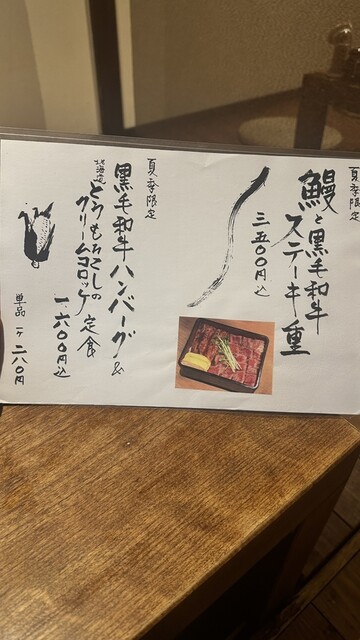 夏季限定
鰻と黒毛和牛
ステーキ重
三五〇〇円込
夏季限定
黒毛和牛ハンバーグ&
北海道
とうもろこしの
クリームコロッケ定食
一、六〇〇円込
単品 一ケ 二八〇円